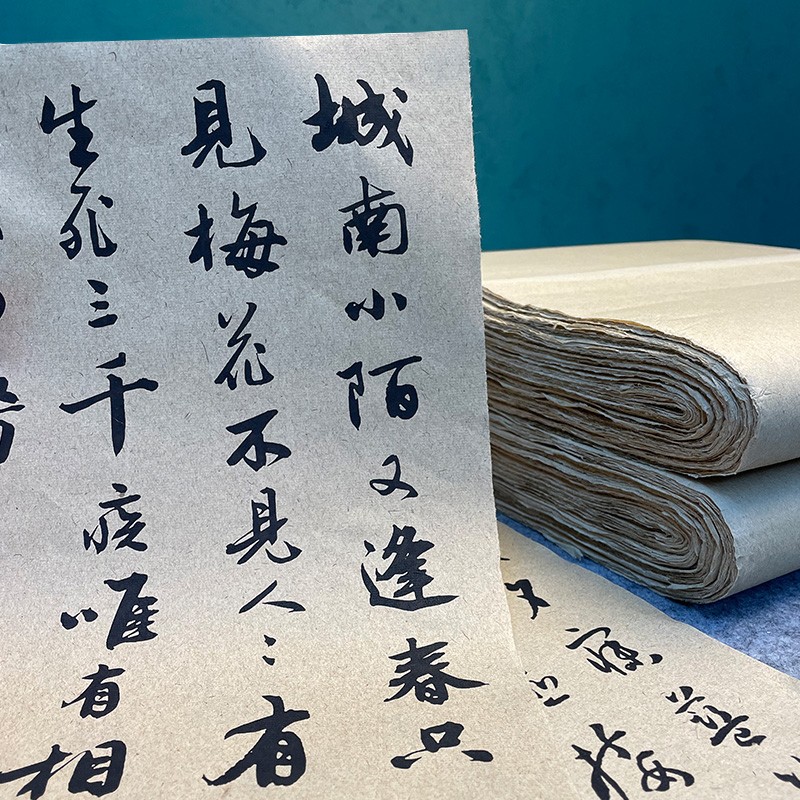 城南小陌又逢春只
見梅花不見人〻有
生死三千疾唯有相